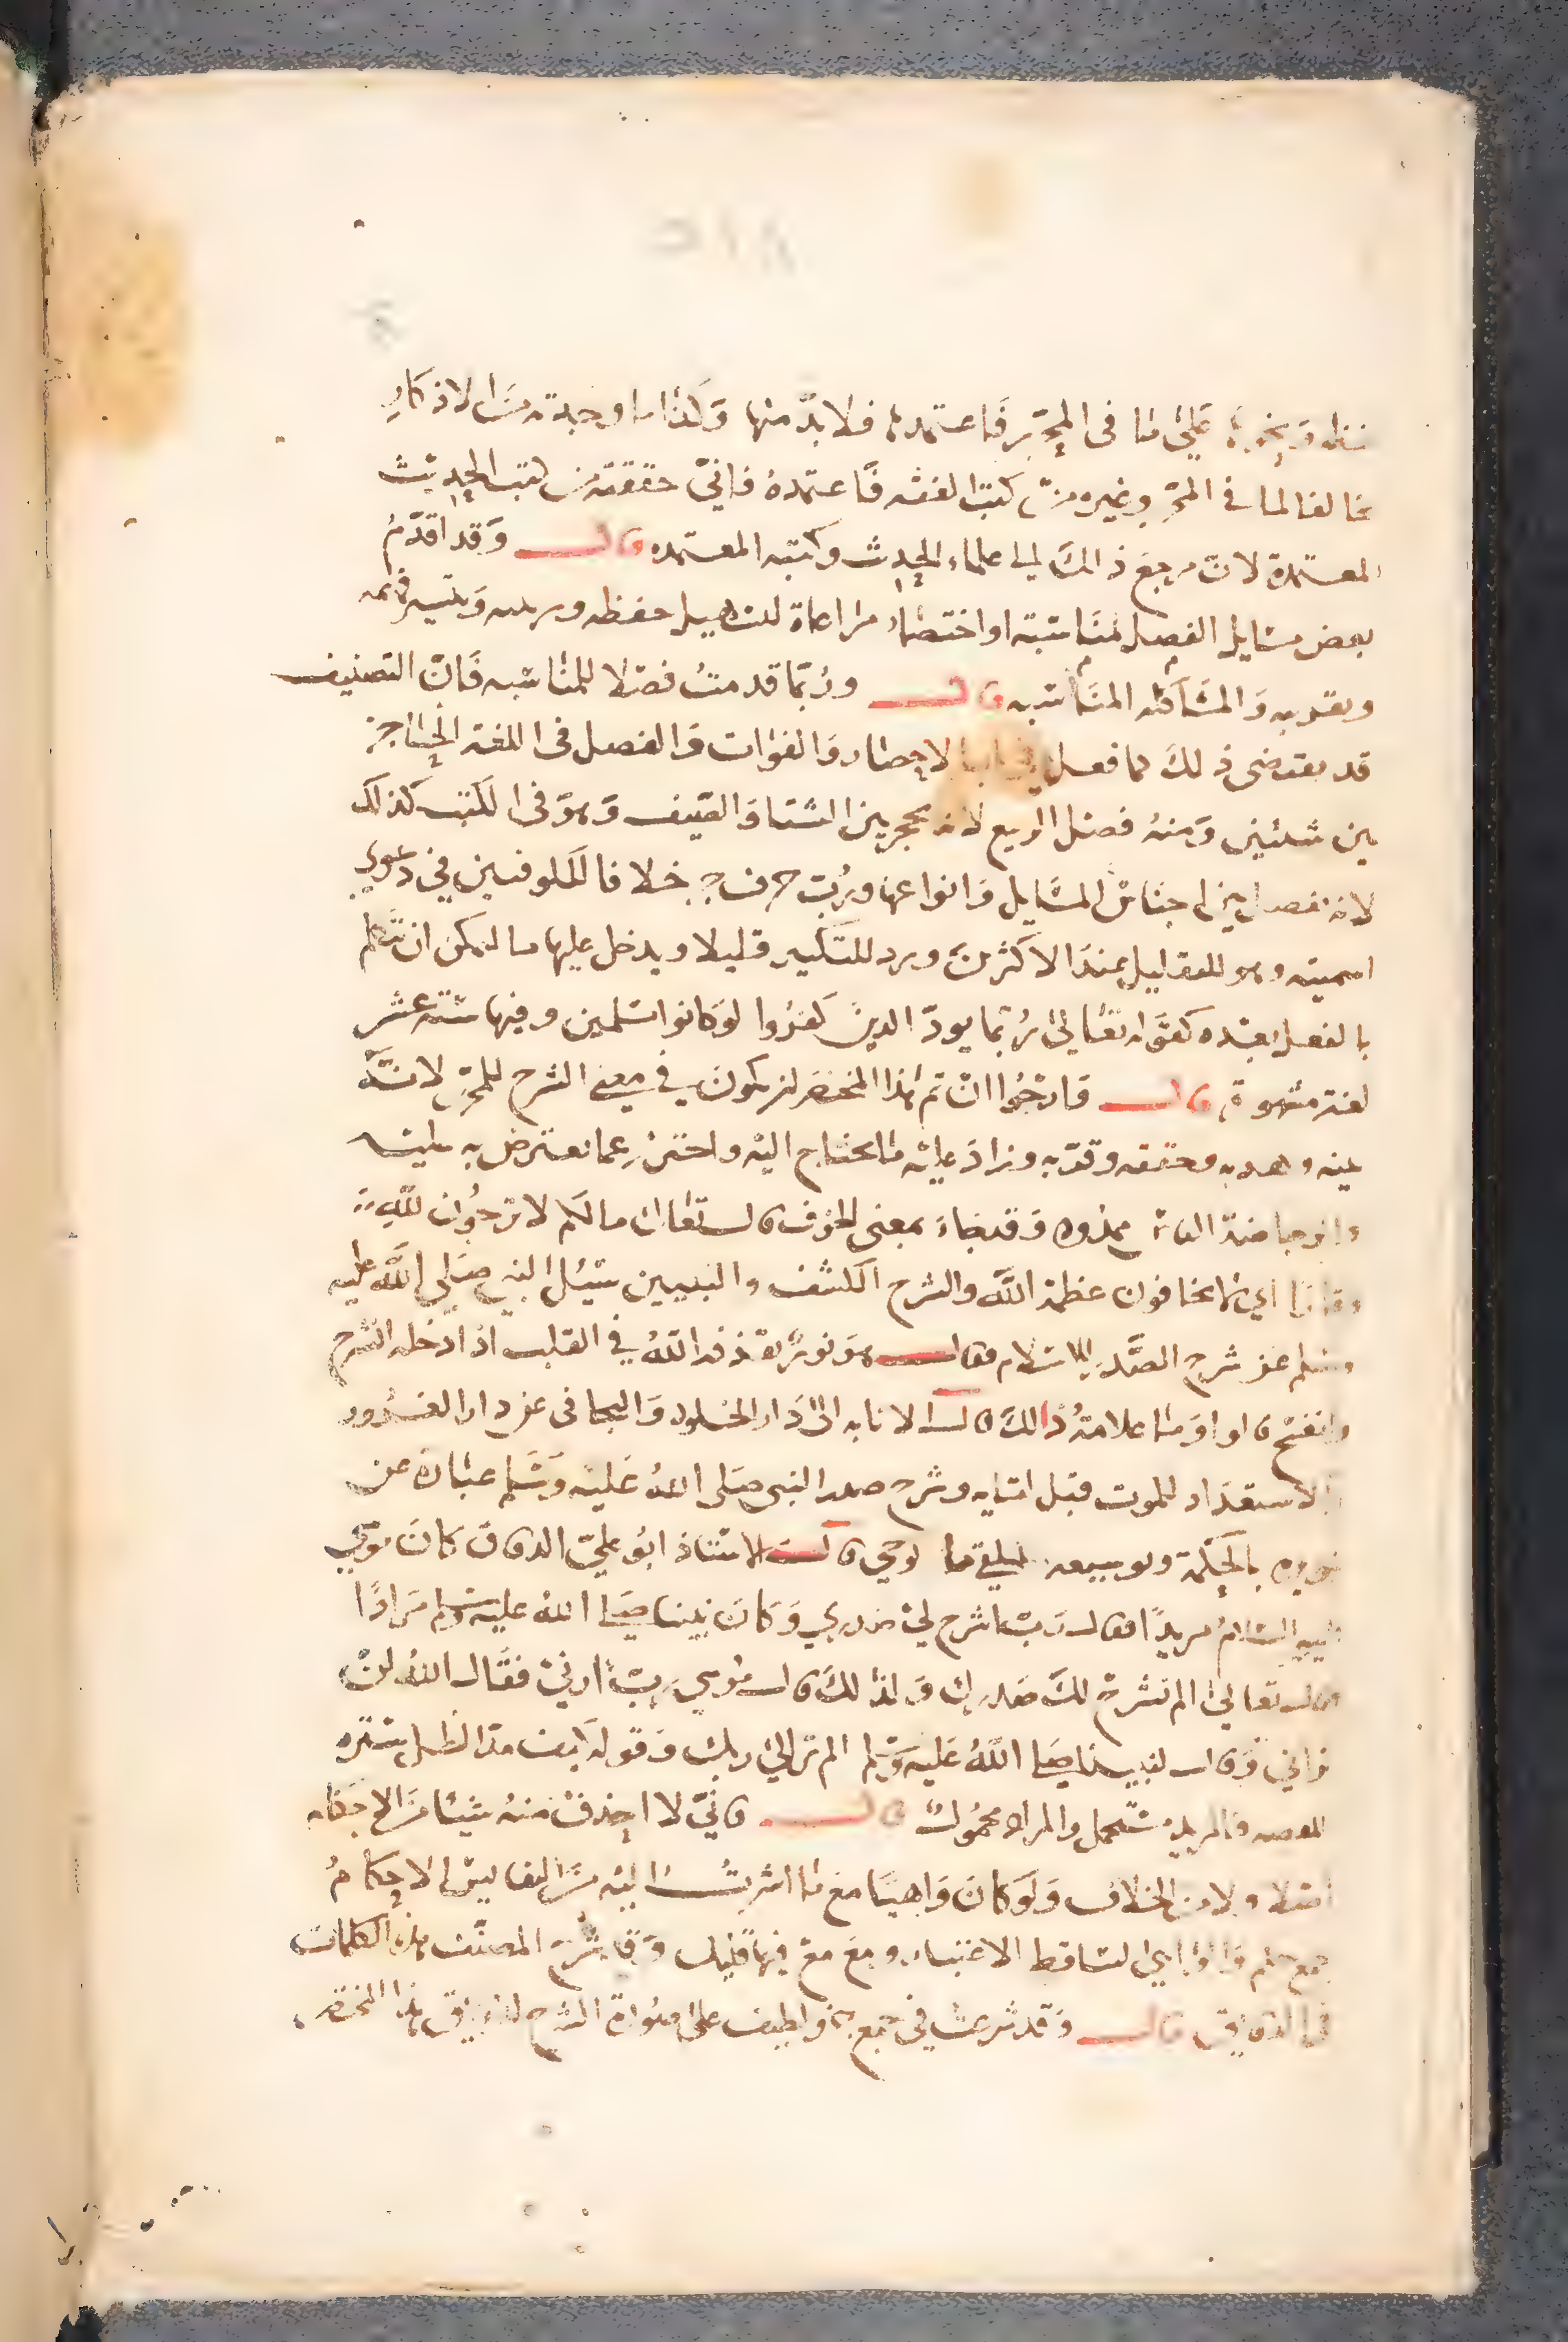 لفظه ونحوه على ما في المحرر فاعتمدها فلا بدّ منها وكذا ما وجدته من الاذكار
مخالفا لما في المحرر وغيره من كتب الفقه فاعتمده فاني حققته من كتب الحديث
المعتمدة لان مرجع ذلك الى علماء الحديث وكتبه المعتمده قال وقد اقدّمُ
بعض مسايل الفصل لمناسبته او اختصار مراعاة لتسهيل حفظه وترتيبه وتيسر فهمه
وتقريبه والمشاكله المناسبه قال وربّما قدمت فصلا للمناسبه فان التصنيف
قد يقتضى ذلك كما فعل في باب الاحصار والفوات والفصل في اللغة الحاجز
بين شيئين ومنه فصل الربيع لانه يحجز بين الشتا والصيف وهو في الكتب كذلك
لانه يفصل بين اجناس المسايل وانواعها وربّ حرف جر خلافا للكوفيين في دعوى
اسميته وهو للتقليل عند الاكثرين ويرد للتكثير قليلا ويدخل عليها ما ليمكن ان تتكلم
بالفعل بعده كقوله تعالى ربما يودّ الذين كفروا لو كانوا مسلمين وفيها ستة عشر
لغة مشهورة قال وارجوا ان تم هذا المختصر ان يكون في معنى الشرح للمحرر لانه
بينه وهذبه وحققه وقرّبه وزاد عليه ما يحتاج اليه واحترز عما يعترض به عليه
والرجا ضد الياس ممدود وقد جاء بمعنى الخوف قال تعالى ما لكم لا ترجون لله
وقارا اي لا تخافون عظمة الله والشرح الكشف والتبيين سئل النبي صلى الله عليه
وسلم عن شرح الصدر للاسلام فقال هو نور يقذفه الله في القلب اذا دخله انشرح
وانفتح قالوا وما علامة ذالك قال الانابه الى دار الخلود والتجافى عن دار الغرور
والاستعداد للموت قبل اتيانه وشرح صدر النبي صلى الله عليه وسلم عبارة عن
تنويره بالحكمة وتوسيعه ليلقى ما يوحى قال الاستاذ ابو علي الدقاق كان موسى
عليه السلام مريدًا فقال رب اشرح لي صدري وكان نبينا صلى الله عليه وسلم مرادًا
قال تعالى الم نشرح لك صدرك ولذلك قال موسى رب ارني فقال الله لن
تراني وقال لنبينا صلى الله عليه وسلم الم تر الى ربك وقوله كيف مد الظل ستره
للقصه فالمريد متحمل والمراد محمول قال فاني لا احذف منه شيئا من الاحكام
اصلا ولا من الخلاف ولو كان واهيا مع ما اشرت اليه من النفايس الاحكام
جمع حكم واهيا اي لتساقط الاعتبار ومع فيها قليل وقد شرح المصنف هذه الكلمات
في الدقايق قال وقد شرعت في جمع جزء لطيف على صورة الشرح لدقايق هذا المختصر